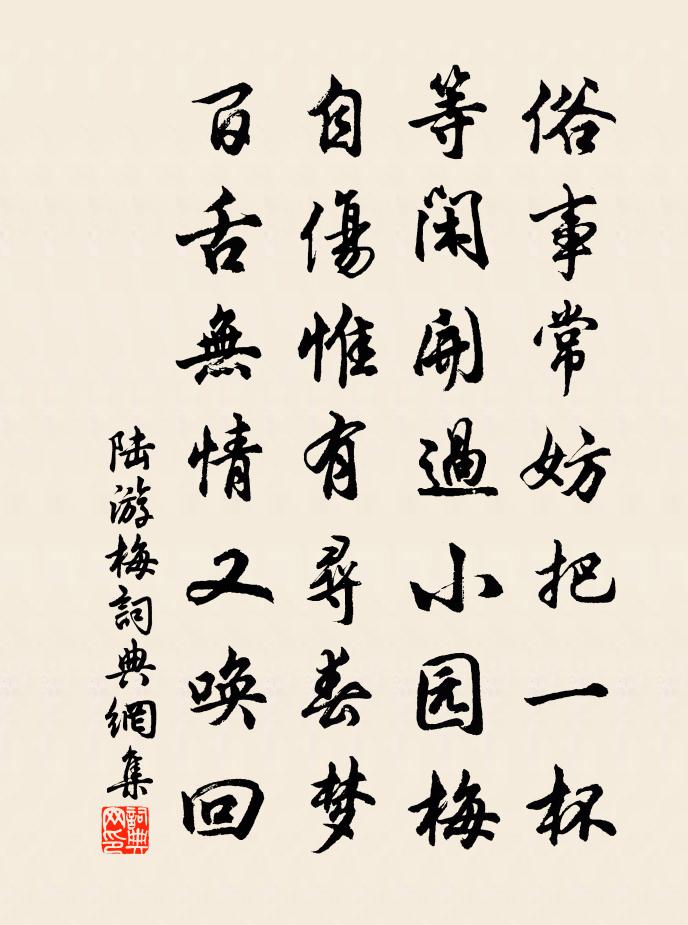 俗事常妨把一杯
等閑開過小园梅
自傷惟有尋春梦
百舌無情又喚回
陆游梅詞典網集
詞典網印